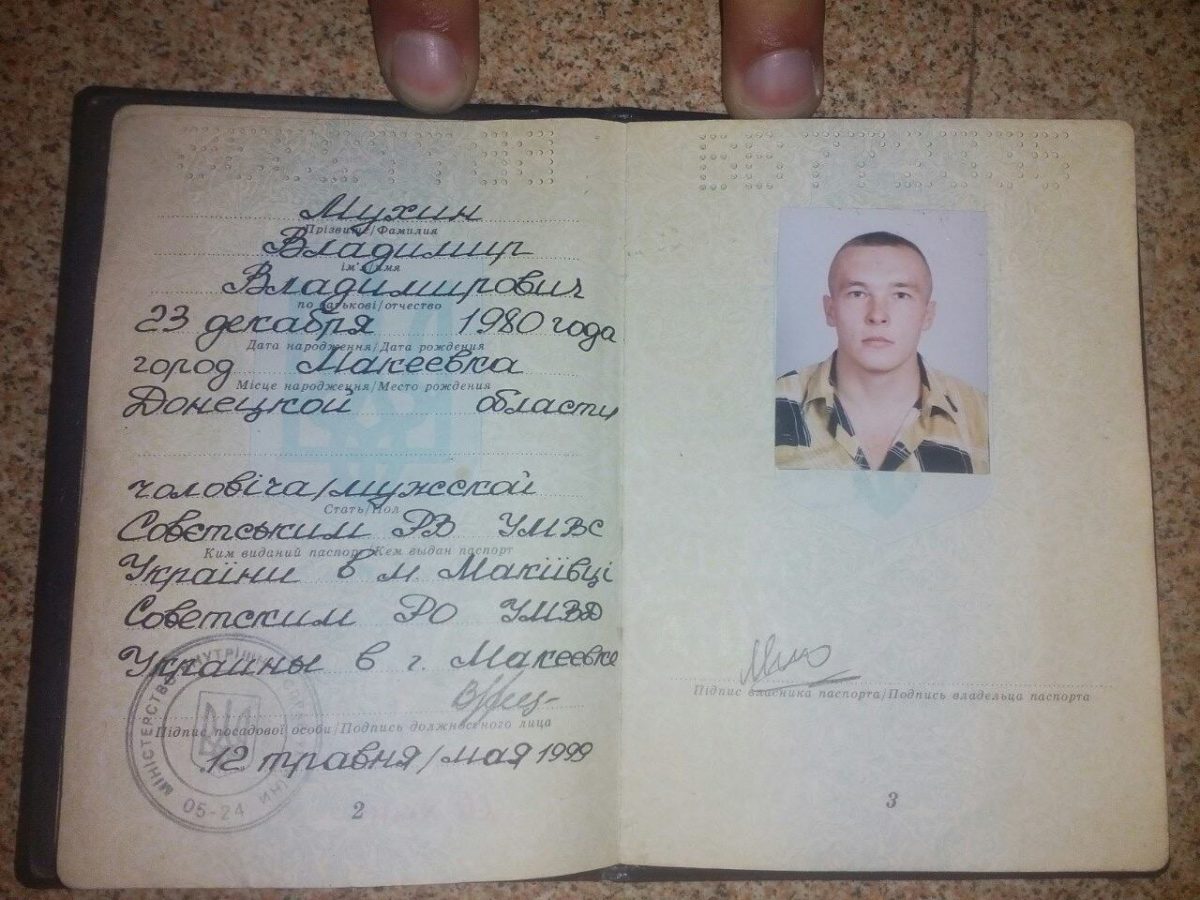 Мухин
Прізвище/Фамилия
Владимир
ім'я/имя
Владимирович
по батькові/отчество
23 декабря 1980 года
Дата народження/Дата рождения
город Макеевка
Місце народження/Место рождения
Донецкой области
чоловіча/мужской
Стать/Пол
Совєтським РВ УМВС
Ким виданий паспорт/Кем выдан паспорт
України в м. Макіївці
Советским РО УМВД
Украины в г. Макеевке
Підпис посадової особи/Подпись должностного лица
12 травня/мая 1999
МІНІСТЕРСТВО ВНУТРІШНІХ СПРАВ УКРАЇНИ
05-24
2
Підпис власника паспорта/Подпись владельца паспорта
3